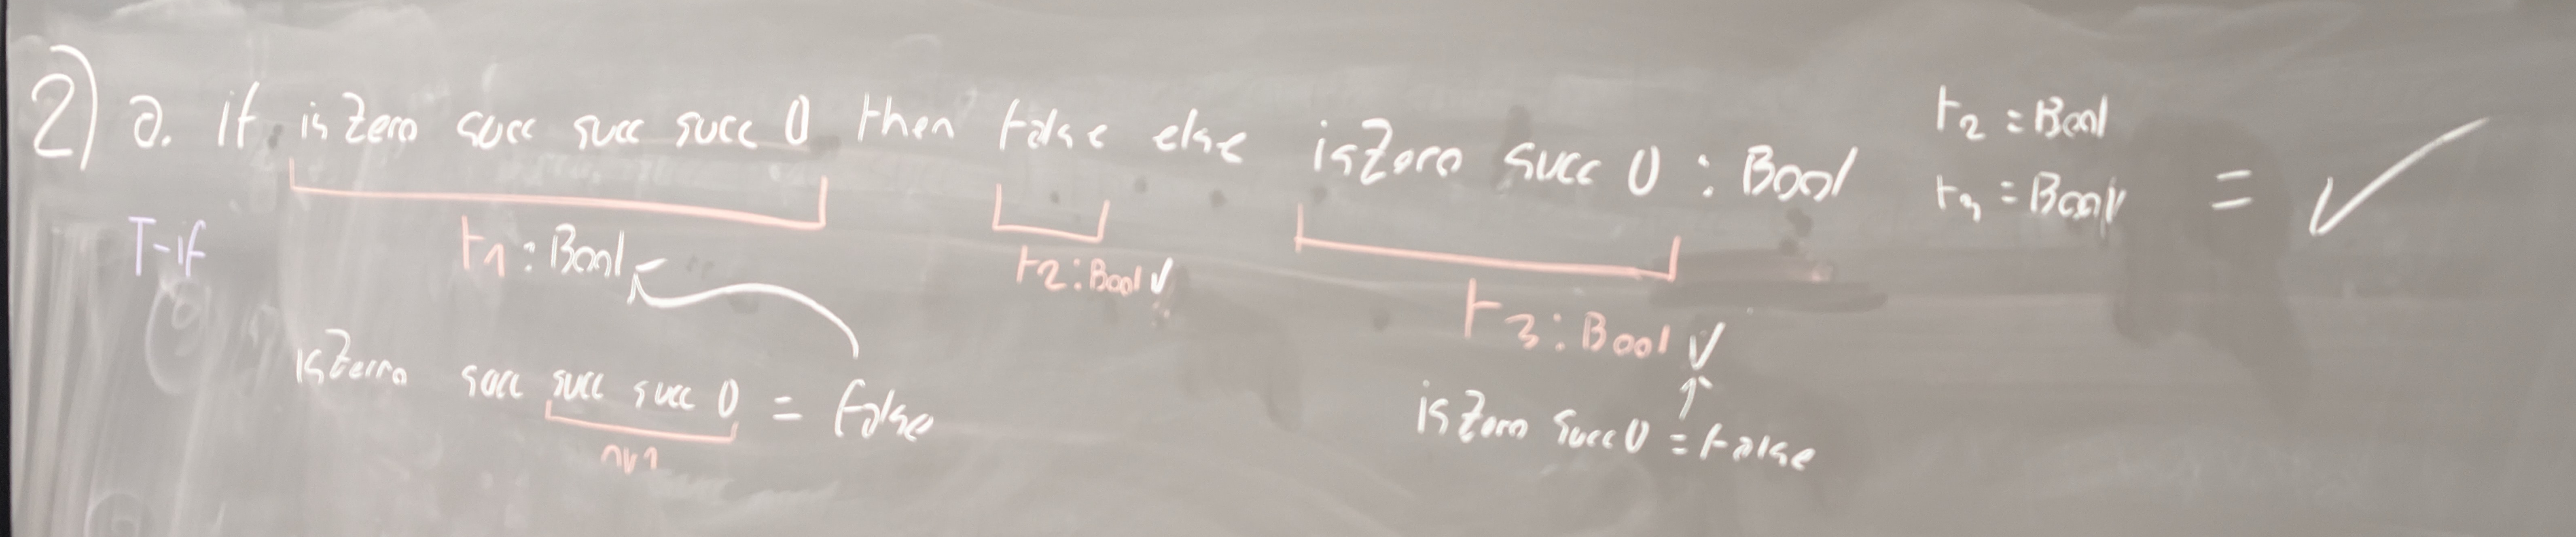 2) a. if isZero succ succ succ 0 then false else isZero succ 0 : Bool
t2 = Bool
t3 = Bool
= ✓
T-if
t1 : Bool
t2 : Bool ✓
t3 : Bool ✓
isZerro succ succ succ 0 = false
nv1
isZero succ 0 = false